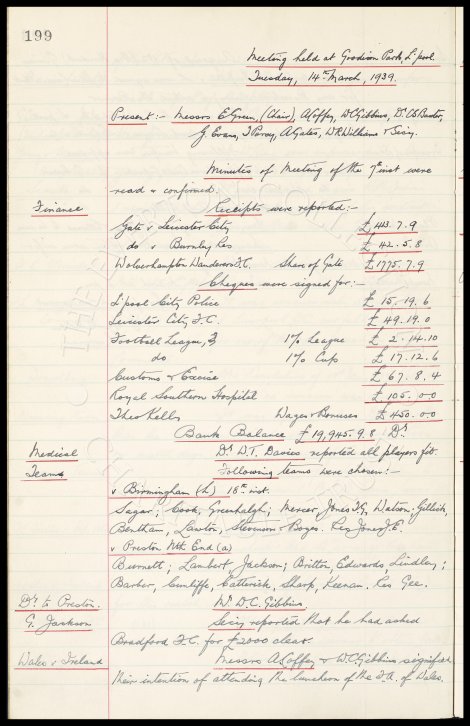 199
Meeting held at Goodison Park, L'pool.
Tuesday, 14th March, 1939.
Present:- Messrs E. Green, (Chair), A. Coffey, W.C. Gibbins, Dr. C.S. Baxter,
G. Evans, T. Percy, A. Gates, W.R. Williams & Secy.
Minutes of Meeting of the 7th inst were
read & confirmed.
Finance Receipts were reported:-
Gate v Leicester City £ 413. 7. 9
do v Burnley Res £ 42. 5. 8
Wolverhampton Wanderers F.C. Share of Gate £ 1775. 7. 9
Cheques were signed for:-
L'pool City Police £ 15. 19. 6
Leicester City F.C. £ 49. 19. 0
Football League, 1% League £ 2. 14. 10
do 1% Cup £ 17. 12. 6
Customs & Excise £ 67. 8. 4
Royal Southern Hospital £ 105. 0. 0
Theo Kelly Wages & Bonuses £ 450. 0. 0
Bank Balance £ 19,945. 9. 8 Dr.
Medical Dr. W.T. Davies reported all players fit.
Teams Following teams were chosen:-
v Birmingham (h) 18th inst.
Sagar; Cook, Greenhalgh; Mercer, Jones T.G, Watson. Gillick,
Bentham, Lawton, Stevenson & Boyes. Res Jones J.E.
v Preston Nth End (a)
Burnett; Lambert, Jackson; Britton, Edwards, Lindley;
Barber, Cunliffe, Catterick, Sharp, Keenan. Res Gee.
Dr. to Preston. Mr. W.C. Gibbins.
G. Jackson Secy reported that he had asked
Bradford F.C. for £2000 clear.
Wales v Ireland Messrs A. Coffey & W.C. Gibbins signified
their intention of attending the luncheon of the F.A. of Wales.